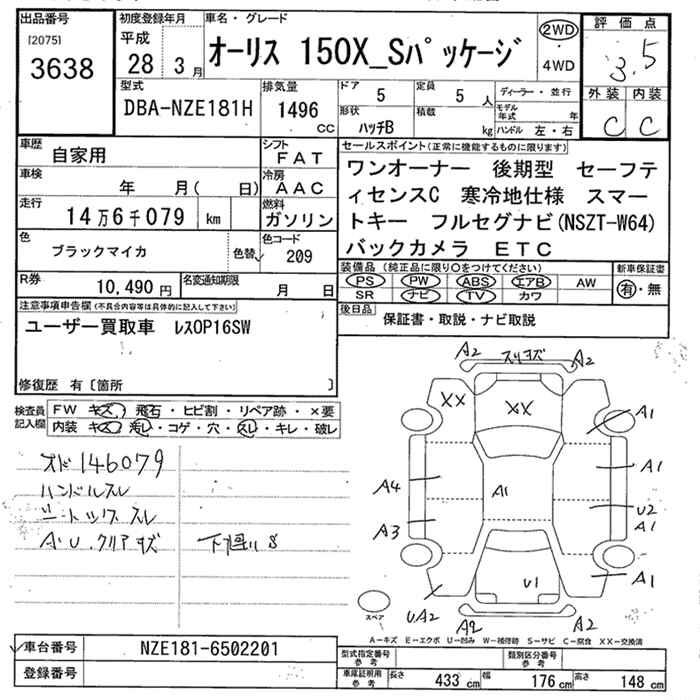 出品番号
[2075]
3638
初度登録年月
平成
28 3月
車名・グレード
オーリス 150X_Sパッケージ
2WD
・
4WD
評価点
3.5
外装 内装
C C
型式
DBA-NZE181H
排気量
1496
CC
ドア
5
形状
ハッチB
定員
5 人
積載
kg
ディーラー・並行
モデル年式 年
ハンドル 左・右
車歴
自家用
シフト
FAT
車検
年 月( 日)
冷房
AAC
走行
14万6千079 km
燃料
ガソリン
色
ブラックマイカ
色替
色コード
209
R券
10,490円
名変通知期限
月 日
セールスポイント(正常に機能するものに限ります)
ワンオーナー 後期型 セーフテ
ィセンスC 寒冷地仕様 スマー
トキー フルセグナビ(NSZT-W64)
バックカメラ ETC
装備品(純正品に限り○をつけてください)
PS PW ABS エアB AW
SR ナビ TV カワ
新車保証書
有・無
後日品
保証書・取説・ナビ取説
注意事項申告欄(不具合内容等は具体的に記入して下さい)
ユーザー買取車 レスOP16SW
修復歴 有〔箇所 〕
検査員
記入欄
FW キズ・飛石・ヒビ割・リペア跡・×要
内装 キズ・汚レ・コゲ・穴・スレ・キレ・破レ
メーター146079
ハンドルスレ
シートシワ スレ
A・U・クリアキズ 下廻りS
A2 スリキズ A2
XX XX
A1
A4 A1 A1
A3 U2
A1
U1 A1
UA2 A2 A2
スペア
A-キズ E-エクボ U-凹み W-補修跡 S-サビ C-腐食 XX-交換済
車台番号
NZE181-6502201
登録番号
型式指定番号
参考
類別区分番号
参考
車庫証明用
参考
長さ 433 cm 幅 176 cm 高さ 148 cm